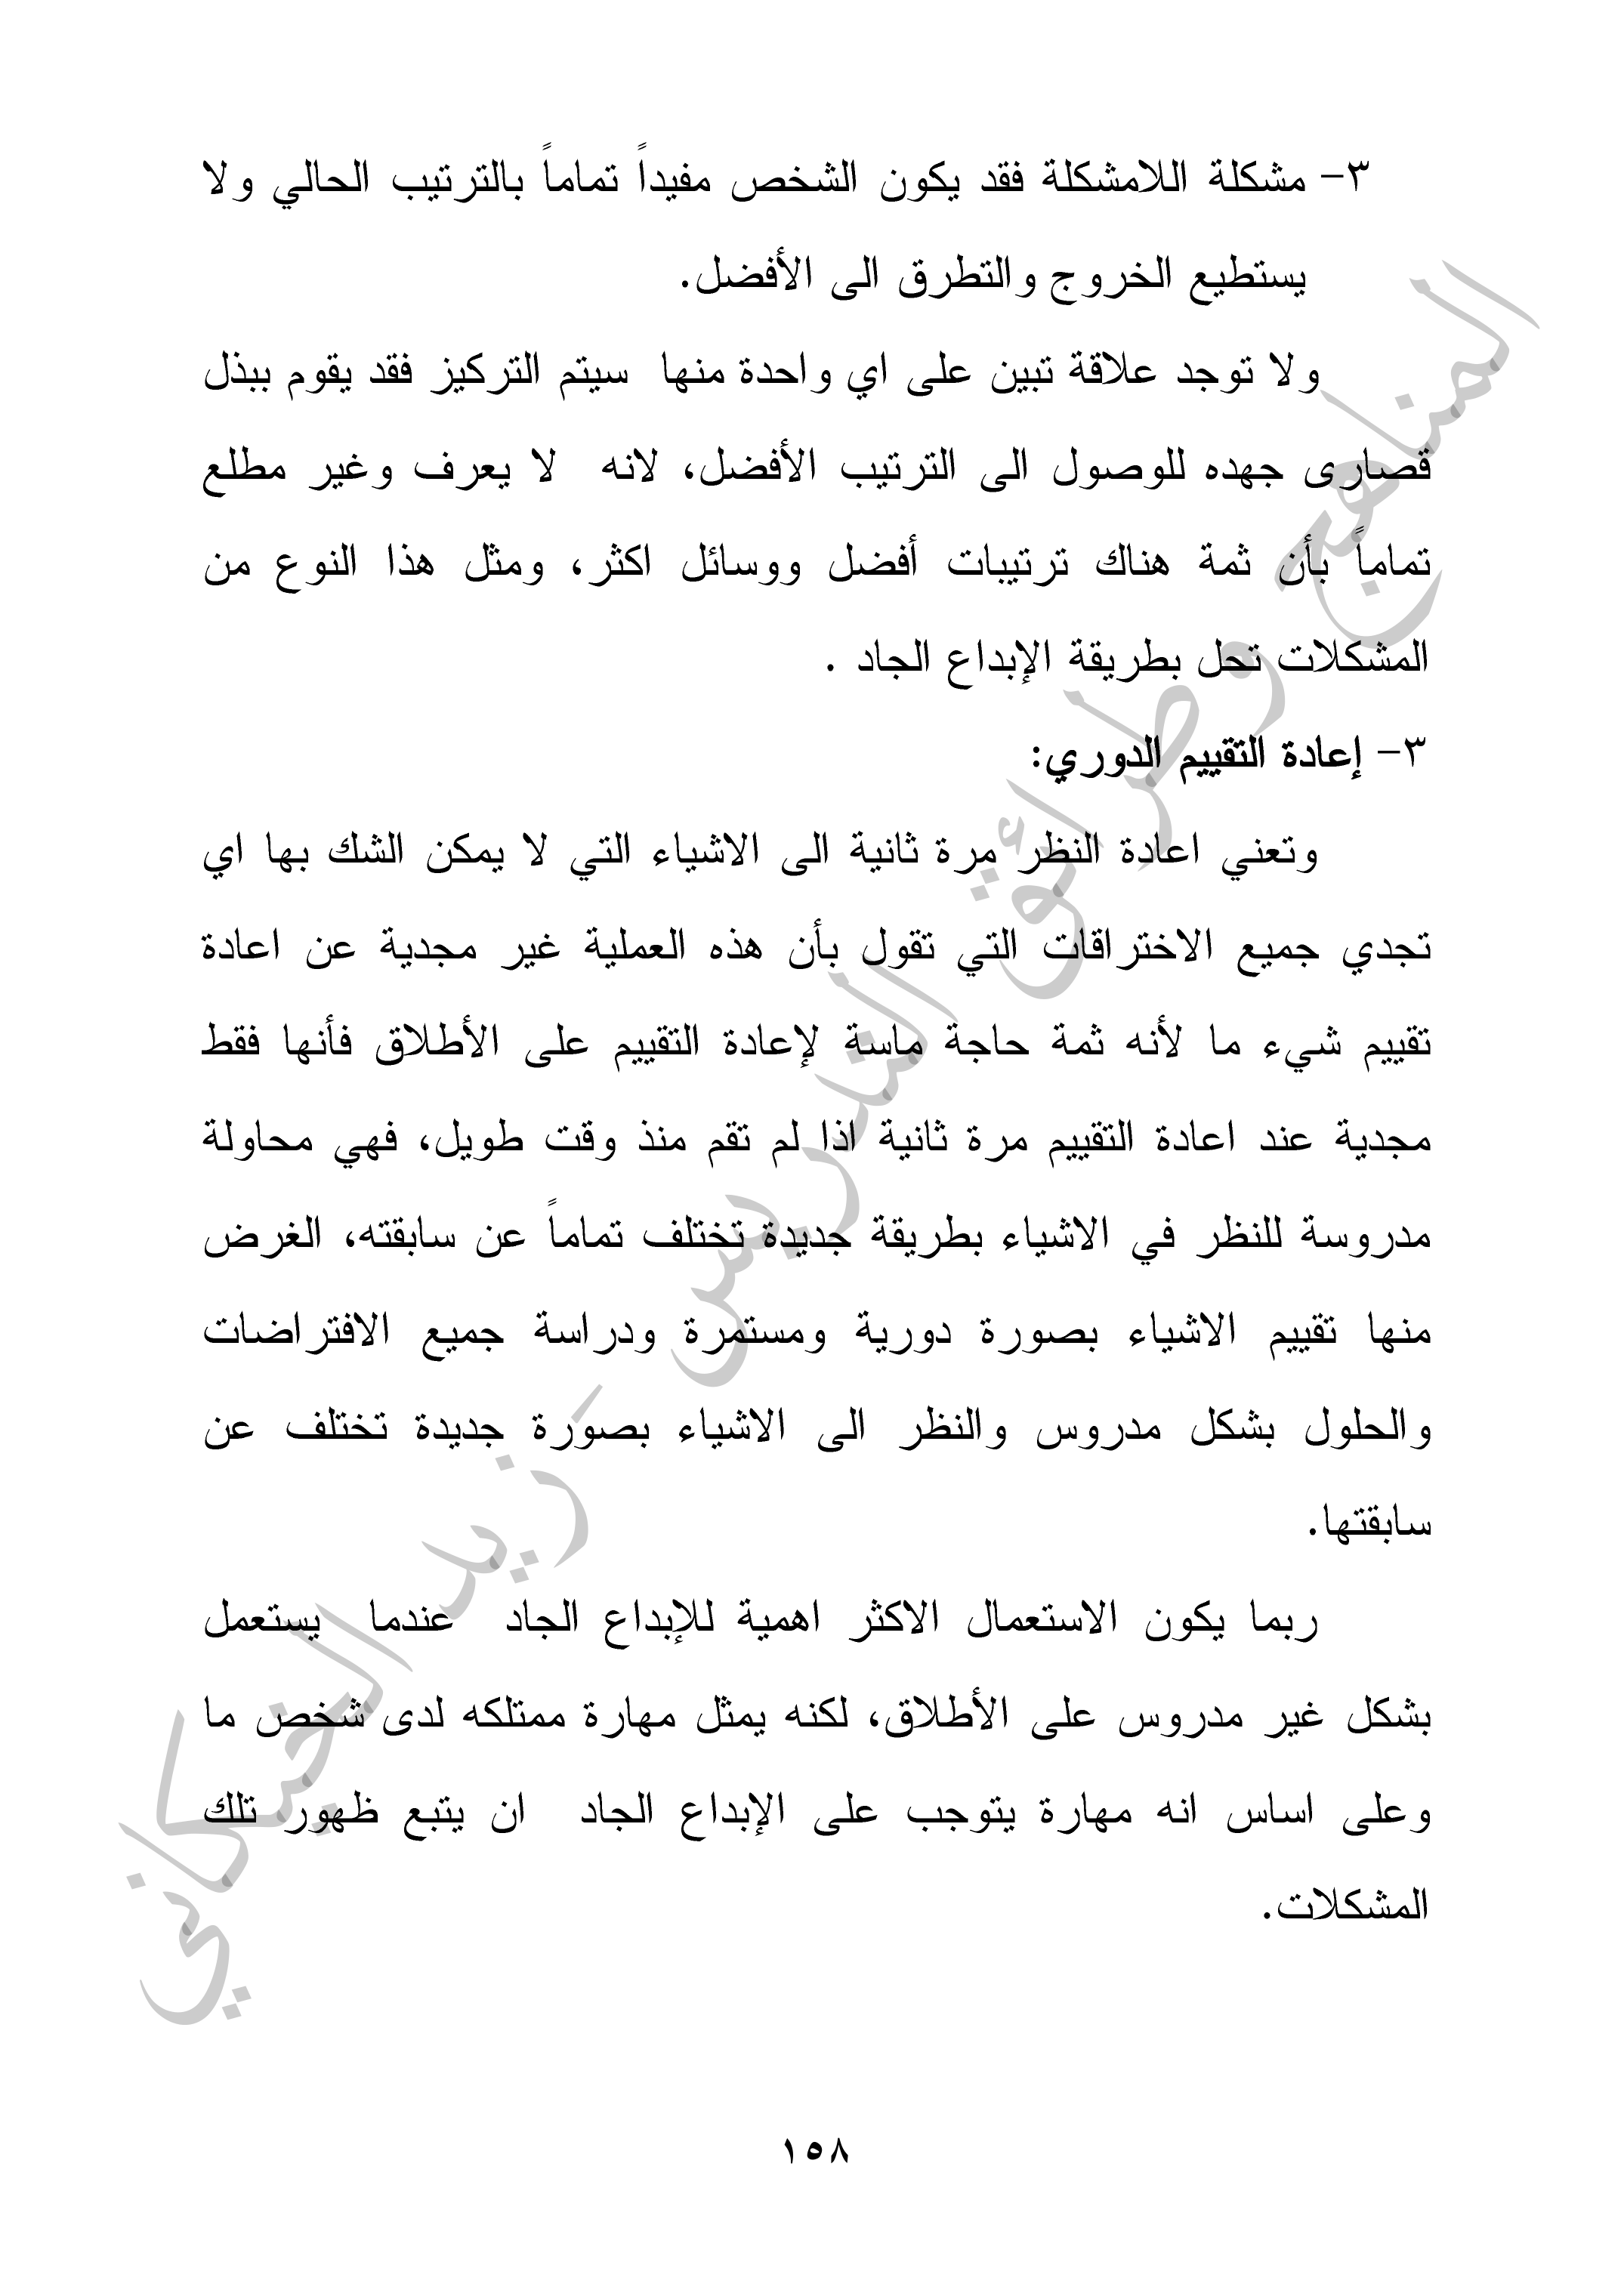 ٣- مشكلة اللامشكلة فقد يكون الشخص مفيداً تماماً بالترتيب الحالي ولا
يستطيع الخروج والتطرق الى الأفضل.
ولا توجد علاقة تبين على اي واحدة منها سيتم التركيز فقد يقوم ببذل
قصارى جهده للوصول الى الترتيب الأفضل، لانه لا يعرف وغير مطلع
تماماً بأن ثمة هناك ترتيبات أفضل ووسائل اكثر، ومثل هذا النوع من
المشكلات تحل بطريقة الإبداع الجاد .
٣- إعادة التقييم الدوري:
وتعني اعادة النظر مرة ثانية الى الاشياء التي لا يمكن الشك بها اي
تجدي جميع الاختراقات التي تقول بأن هذه العملية غير مجدية عن اعادة
تقييم شيء ما لأنه ثمة حاجة ماسة لإعادة التقييم على الأطلاق فأنها فقط
مجدية عند اعادة التقييم مرة ثانية اذا لم تقم منذ وقت طويل، فهي محاولة
مدروسة للنظر في الاشياء بطريقة جديدة تختلف تماماً عن سابقته، الغرض
منها تقييم الاشياء بصورة دورية ومستمرة ودراسة جميع الافتراضات
والحلول بشكل مدروس والنظر الى الاشياء بصورة جديدة تختلف عن
سابقتها.
ربما يكون الاستعمال الاكثر اهمية للإبداع الجاد عندما يستعمل
بشكل غير مدروس على الأطلاق، لكنه يمثل مهارة ممتلكه لدى شخص ما
وعلى اساس انه مهارة يتوجب على الإبداع الجاد ان يتبع ظهور تلك
المشكلات.
المناهج وطرائق التدريس - زيد الخيكاني
١٥٨